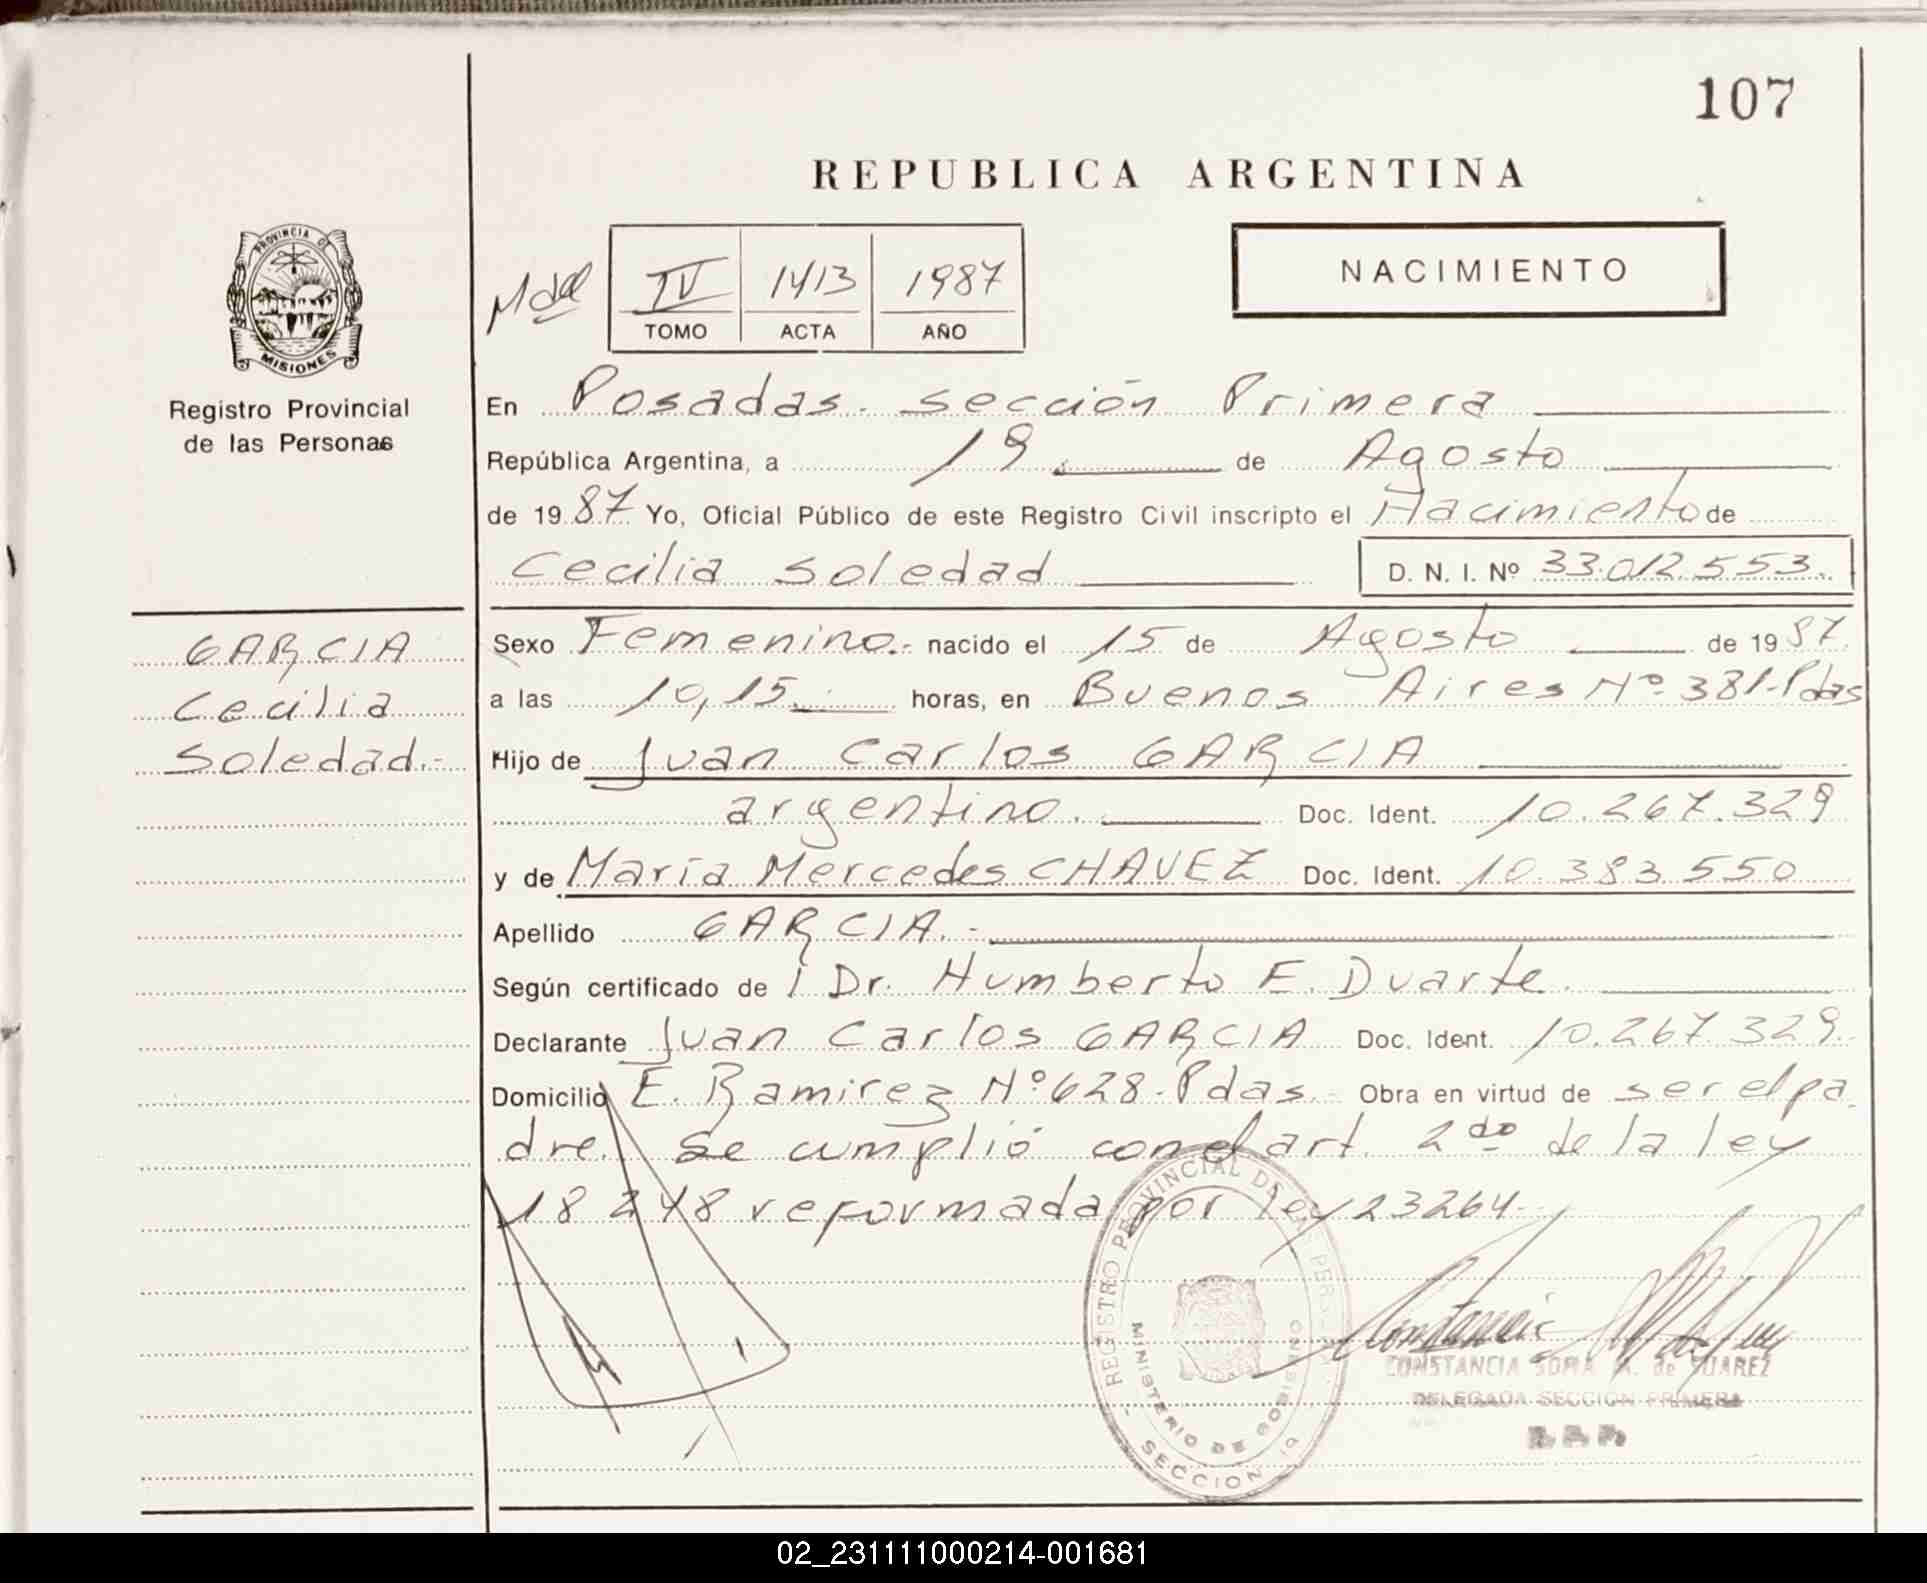 107
REPUBLICA ARGENTINA
PROVINCIA DE
MISIONES
Registro Provincial
de las Personas
IV 1413 1987
TOMO ACTA AÑO
NACIMIENTO
En Posadas. sección Primera
República Argentina, a 19 de Agosto
de 1987 Yo, Oficial Público de este Registro Civil inscripto el Nacimiento de
Cecilia Soledad D. N. I. Nº 33.012.553.
GARCIA
Cecilia
Soledad.-
Sexo Femenino.- nacido el 15 de Agosto de 1987
a las 10,15. horas, en Buenos Aires Nº 381-Pdas
Hijo de Juan Carlos GARCIA
argentino. Doc. Ident. 10.267.329
y de María Mercedes CHAVEZ Doc. Ident. 10.383.550
Apellido GARCIA.-
Según certificado de l Dr. Humberto E. Duarte.
Declarante Juan Carlos GARCIA Doc. Ident. 10.267.329.-
Domicilio E. Ramirez Nº 628-Pdas. Obra en virtud de ser el pa
dre. Se cumplió con el art. 2do de la ley
18248 reformada por ley 23264.-
REGISTRO PROVINCIAL DE LAS PERSONAS
MINISTERIO DE GOBIERNO
SECCION 1a
CONSTANCIA SOFIA M. de SUAREZ
DELEGADA SECCION PRIMERA
R. P. P.
02_231111000214-001681